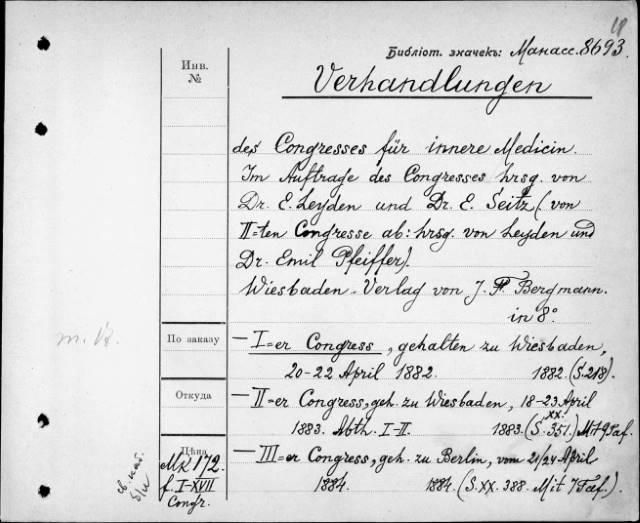 18
Библіот. значекъ: Манасс. 8693.
Инв.
№
Verhandlungen
des Congresses für innere Medicin.
Im Auftrage des Congresses hrsg. von
Dr. E. Leyden und Dr. E. Seitz (von
II=ten Congresse ab: hrsg. von Leyden und
Dr. Emil Pfeiffer).
Wiesbaden - Verlag von J. F. Bergmann.
in 8°.
По заказу
— I=er Congress, gehalten zu Wiesbaden,
20-22 April 1882. 1882. (S. 218).
Откуда
— II=er Congress, geh. zu Wiesbaden, 18-23 April
1883. Abth. I-II. 1883. (S. XX. 351.) Mit 9 Taf.
Цѣна
Mk 172.
f. I-XVII
Congr.
— III=er Congress, geh. zu Berlin, vom 21/24 April
1884. 1884. (S. XX. 388. Mit 7 Taf.).